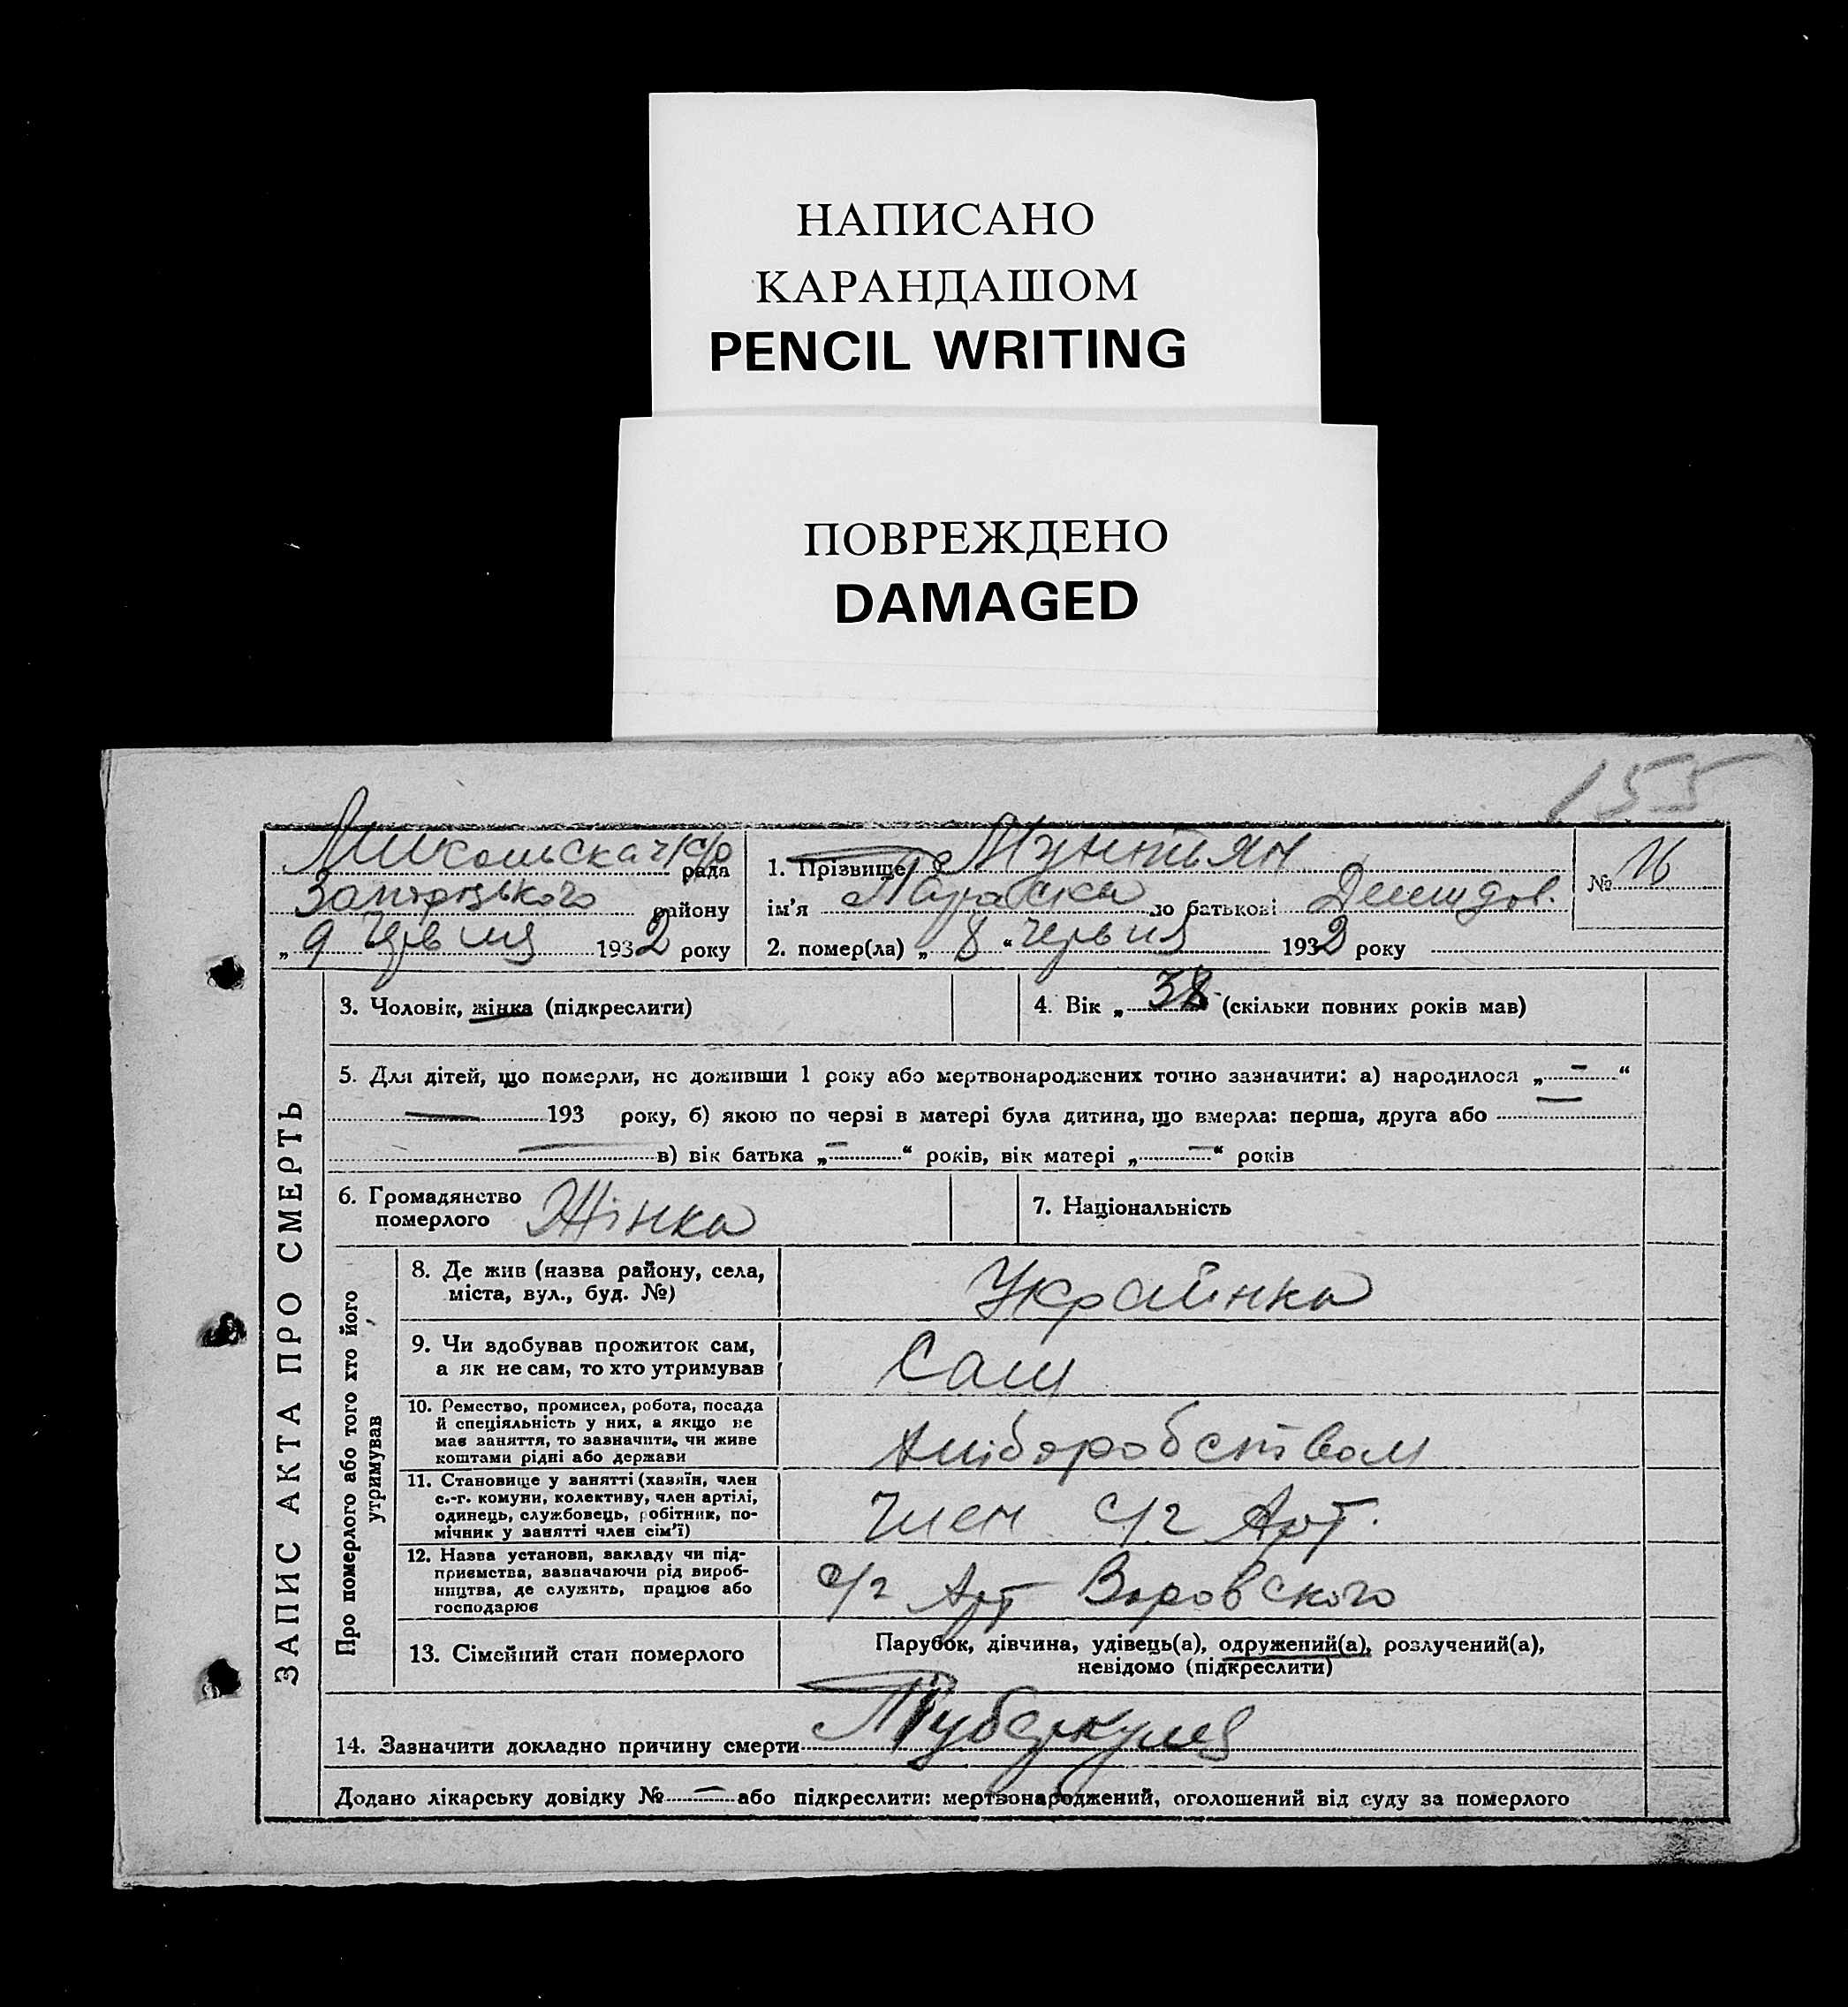 НАПИСАНО
КАРАНДАШОМ
PENCIL WRITING
ПОВРЕЖДЕНО
DAMAGED
155
Микольска с/р
рада
1. Прізвище Мунтьян
№ 16
Запорізького району
ім’я Параска по батькові Демидов.
„ 9 Червня 1932 року
2. помер(ла) „ 8 “ червня 1932 року
ЗАПИС АКТА ПРО СМЕРТЬ
3. Чоловік, жінка (підкреслити)
4. Вік „ 38 (скільки повних років мав)
5. Для дітей, що померли, не доживши 1 року або мертвонароджених точно зазначити: а) народилося „ – “
— 193 року, б) якою по черзі в матері була дитина, що вмерла: перша, друга або —
— в) вік батька „ – “ років, вік матері „ – “ років
6. Громадянство
померлого Жінка
7. Національність
Про померлого або того хто його
утримував
8. Де жив (назва району, села,
міста, вул., буд. №)
Українка
9. Чи здобував прожиток сам,
а як не сам, то хто утримував
Сам
10. Ремество, промисел, робота, посада
й спеціяльність у них, а якщо не
має заняття, то зазначити, чи живе
коштами рідні або держави
хліборобством
11. Становище у занятті (хазяїн, член
с.-г. комуни, колективу, член артілі,
одинець, службовець, робітник, по-
мічник у занятті член сім’ї)
Член с/г Арт.
12. Назва установи, закладу чи під-
приємства, зазначаючи рід вироб-
ництва, де служить, працює або
господарює
с/г Арт Воровского
13. Сімейний стан померлого
Парубок, дівчина, удівець(а), одружений(а), розлучений(а),
невідомо (підкреслити)
14. Зазначити докладно причину смерти Туберкульо
Додано лікарську довідку № – або підкреслити: мертвонароджений, оголошений від суду за померлого